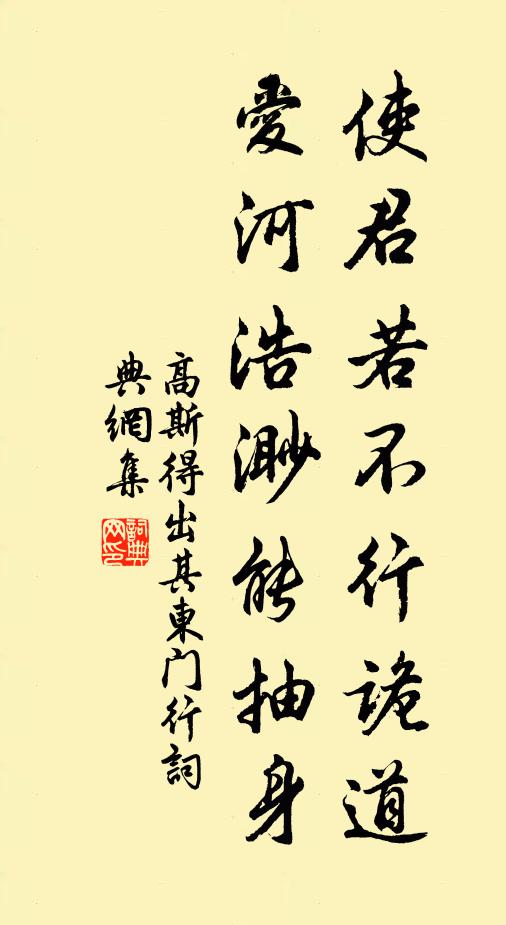 使君若不行詭道
愛河浩渺能抽身
高斯得出其東門行詞
典網集
詞典網印